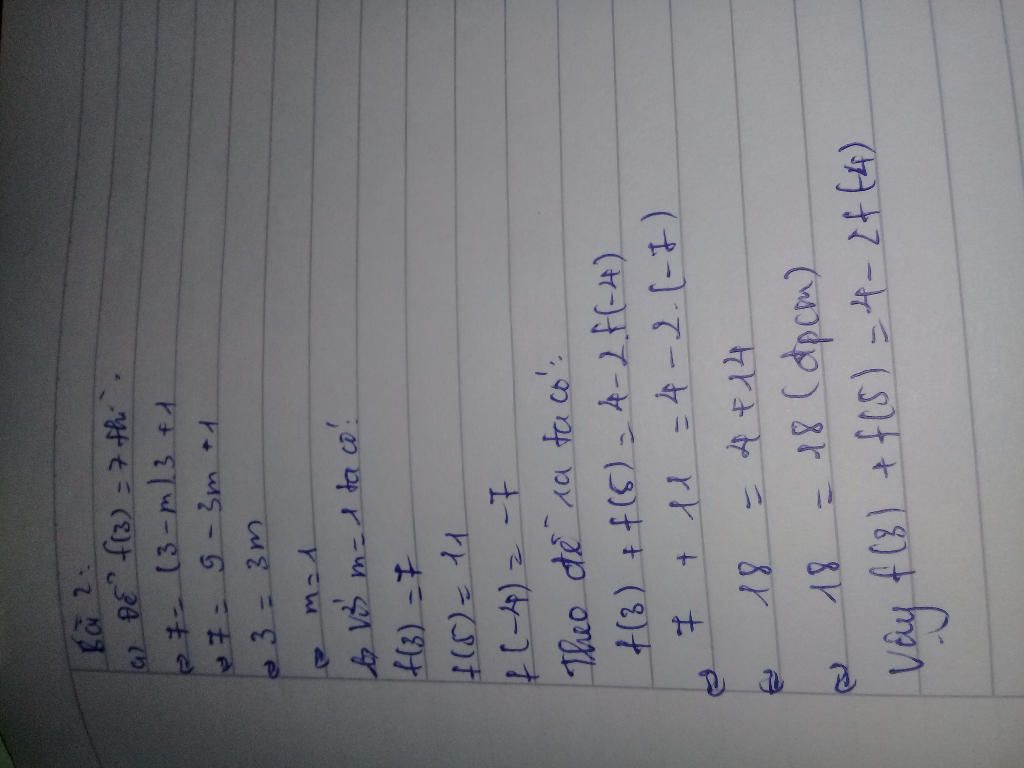 Bài 2:
a) Để f(3) = 7 thì:
⇔ 7 = (3 - m)3 + 1
⇔ 7 = 9 - 3m + 1
⇔ 3 = 3m
⇔ m = 1
b) Với m = 1 ta có:
f(3) = 7
f(5) = 11
f(-4) = -7
Theo đề ra ta có:
f(3) + f(5) = 4 - 2.f(-4)
⇔ 7 + 11 = 4 - 2.(-7)
⇔ 18 = 4 + 14
⇔ 18 = 18 (đpcm)
Vậy f(3) + f(5) = 4 - 2f(-4)